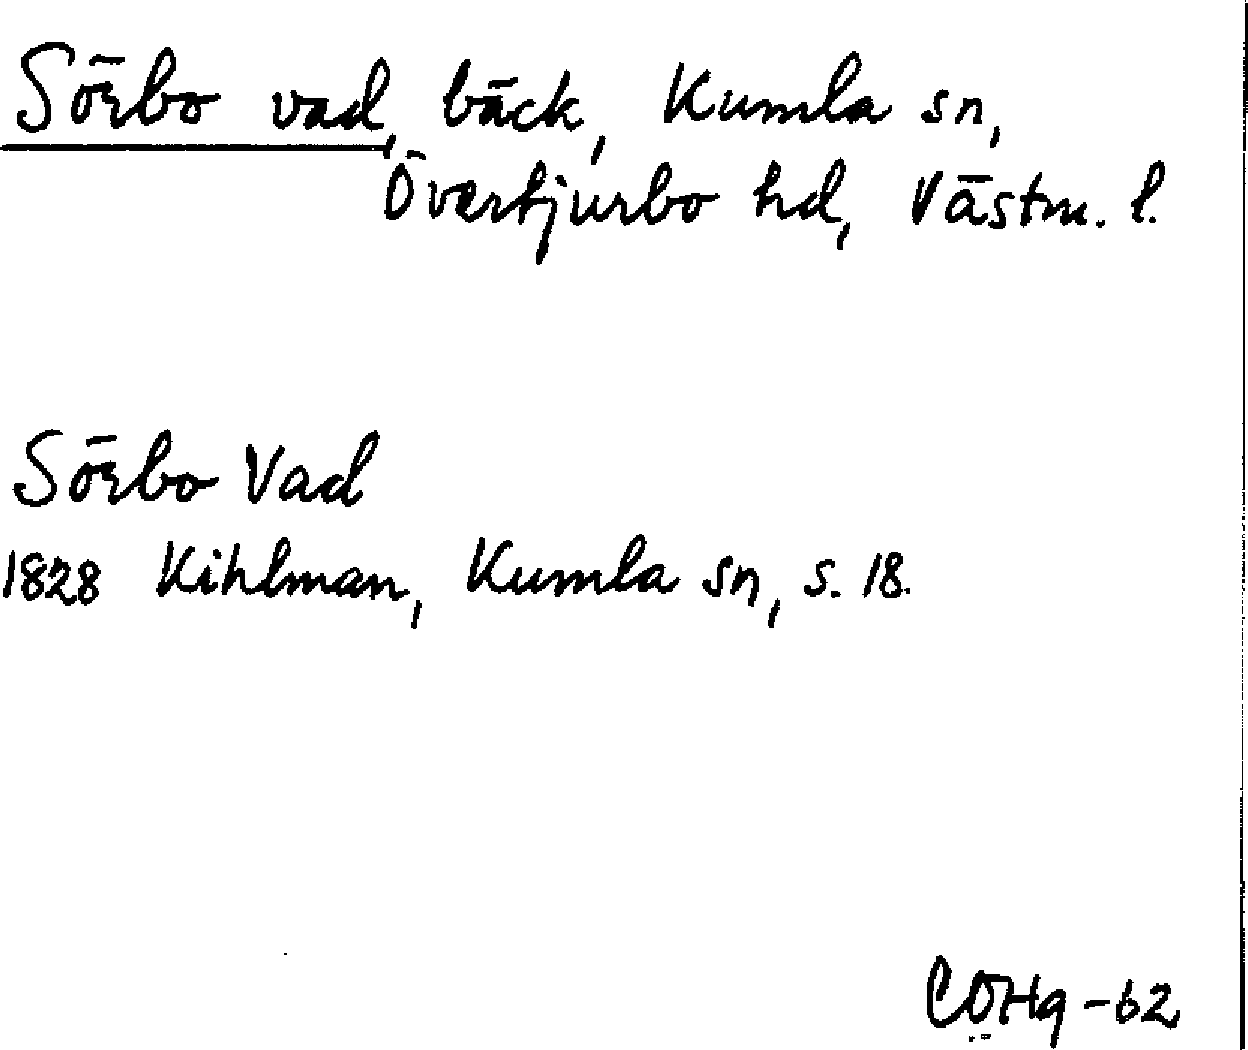 Sörbo vad, bäck, Kumla sn,
Övertjurbo hd, Västm. l.
Sörbo Vad
1828 Kihlman, Kumla sn, s. 18.
COHg-62